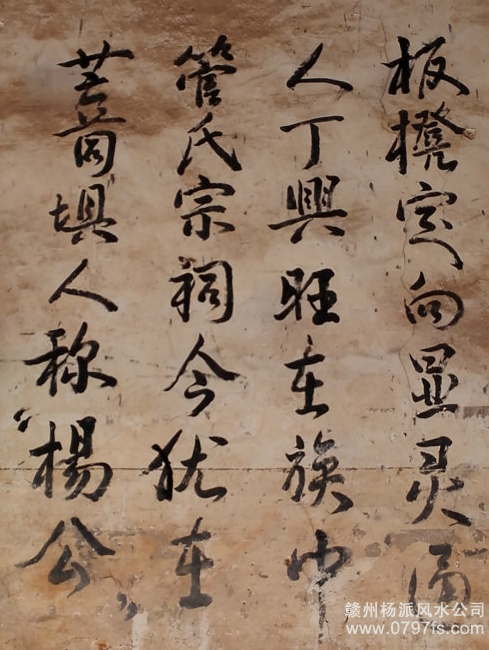 板櫈定向显灵通
人丁興旺在族中
管氏宗祠今犹在
菖蒲坝人称“杨公”
赣州杨派风水公司
www.0797fs.com